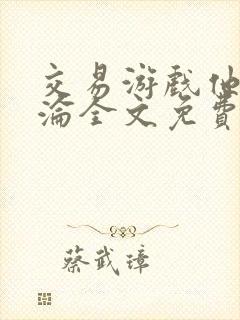 交易游戏他
沦全文免费
蔡武璋